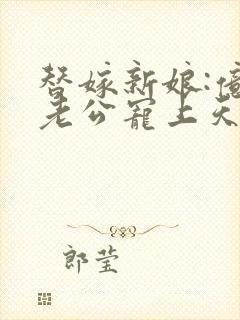 替嫁新娘:億
老公寵上天
郎莹